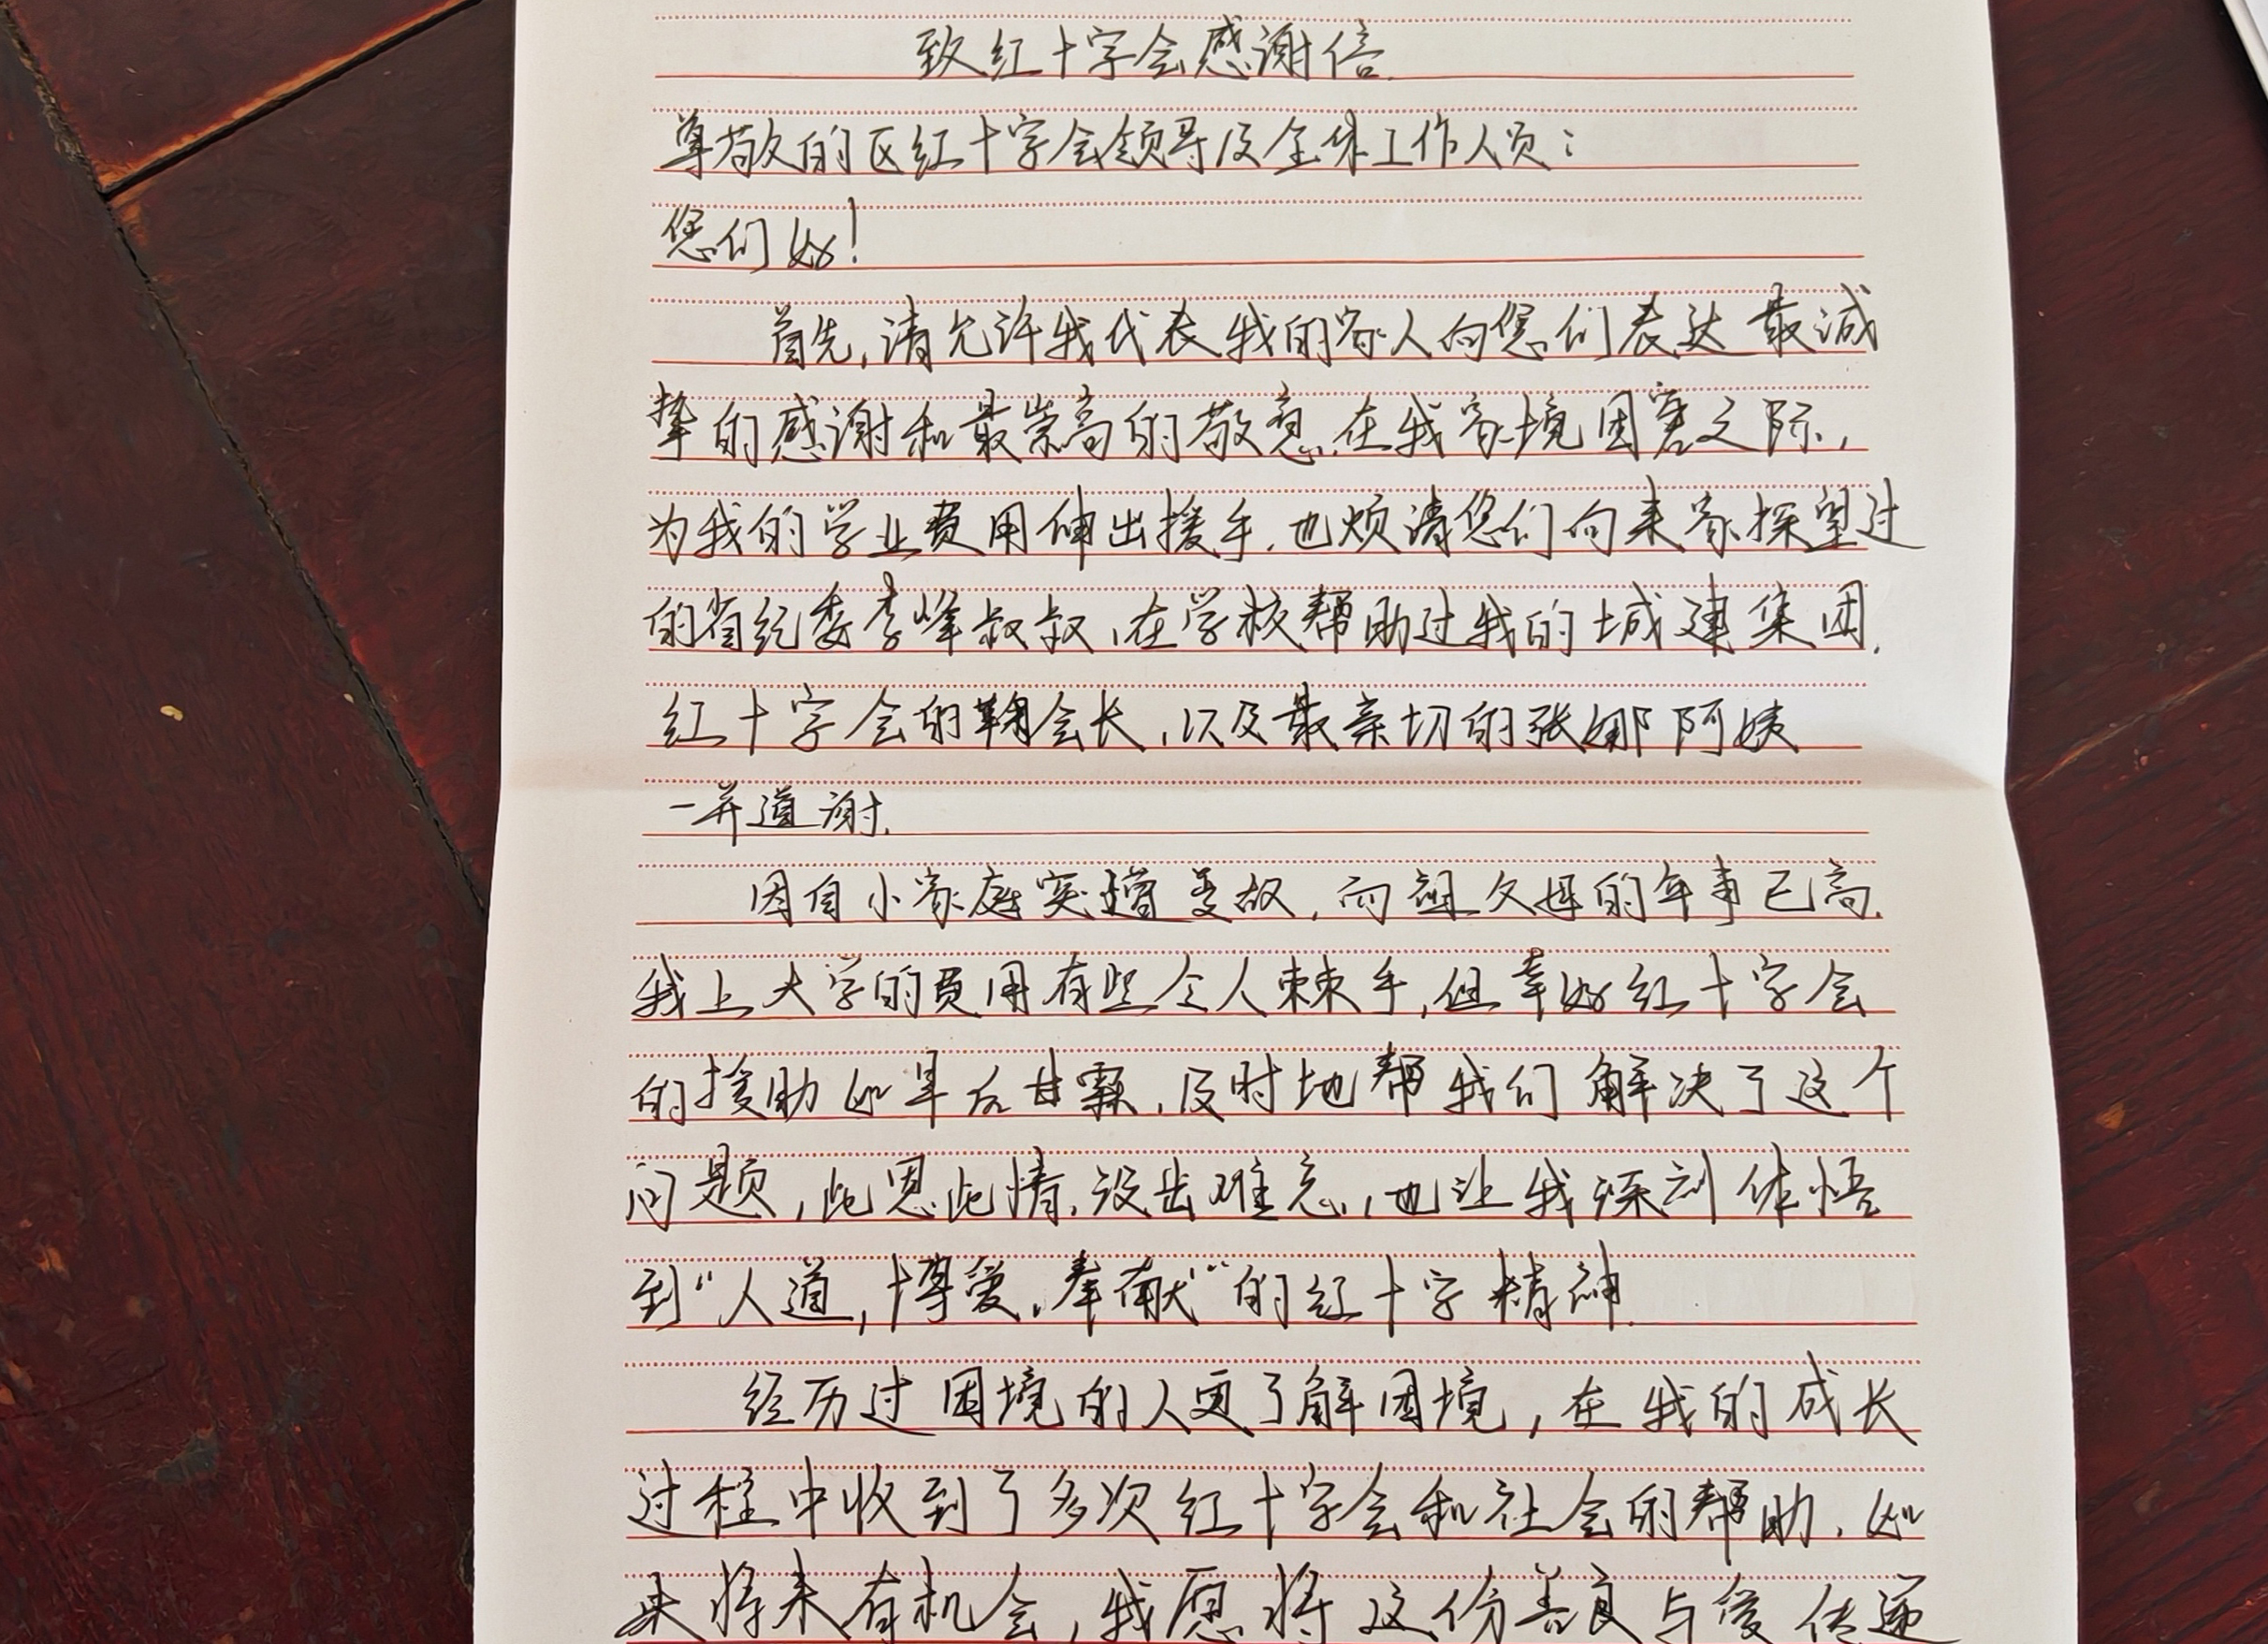 致红十字会感谢信.
尊敬的区红十字会领导及全体工作人员：
您们好！
首先,请允许我代表我的家人向您们表达最诚
挚的感谢和最崇高的敬意.在我家境困窘之际,
为我的学业费用伸出援手.也烦请您们向来家探望过
的省纪委李峰叔叔,在学校帮助过我的城建集团.
红十字会的鞠会长,以及最亲切的张娜阿姨
一并道谢.
因自小家庭突遭变故,而祖父母的年事已高.
我上大学的费用有些令人棘手,但幸好红十字会
的援助如旱后甘霖,及时地帮我们解决了这个
问题,此恩此情.没齿难忘,也让我深刻体悟
到“人道,博爱,奉献”的红十字精神.
经历过困境的人更了解困境,在我的成长
过程中收到了多次红十字会和社会的帮助.如
果将来有机会,我愿将这份善良与爱传递